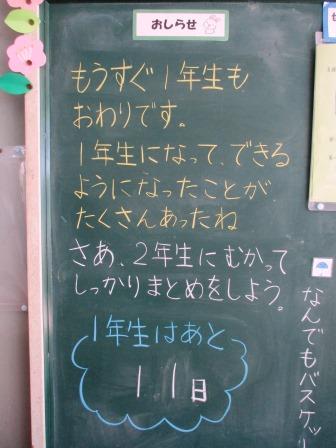 おしらせ
もうすぐ1年生も
おわりです。
1年生になって、できる
ようになったことが
たくさんあったね
さあ、2年生にむかって
しっかりまとめをしよう。
1年生はあと
11日
なんでもバスケッ